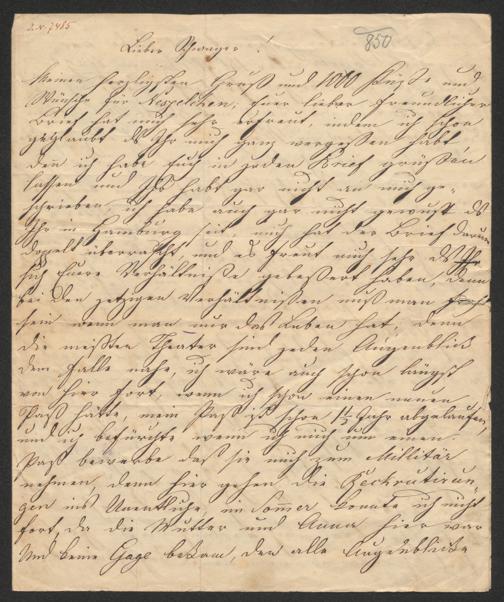 I.N. 7485
850
Lieber Schwager!
Meinen herzlichsten Gruß und 1000 Küße und
Wünsche für Nespelchen, Euer lieber freundlicher
Brief hat mich sehr erfreut, indem ich schon
geglaubt ds Ihr mich ganz vergeßen habt
den ich habe Euch in jeden Brief grüßen
laßen und Ihr habt gar nicht an mich ge-
schrieben, ich habe auch gar nicht gewust ds
Ihr in Hamburg seit mich hat der Brief darum
doppelt überrascht und es freut mich sehr ds
sich Euere Verhältniße gebeßert haben, denn
bei den jetzigen Verhältnißen muß man froh
sein wenn man nur das Leben hat, denn
die meisten Theater sind jeden Augenblick
dem Falle nahe, ich wäre auch schon längst
von hier fort, wenn ich schon einen neuen
Paß hätte, mein Paß ist schon 1½ Jahr abgelaufen,
und ich befürchte wenn ich mich um einen
Paß bewerbe das sie mich zum Millitär
nehmen, denn hier gehen die Reckrutirun-
gen ins Unentliche, im Somer konnte ich nicht
fort, da die Mutter und Anna hier war
und keine Gage bekam, den alle Augenblicke